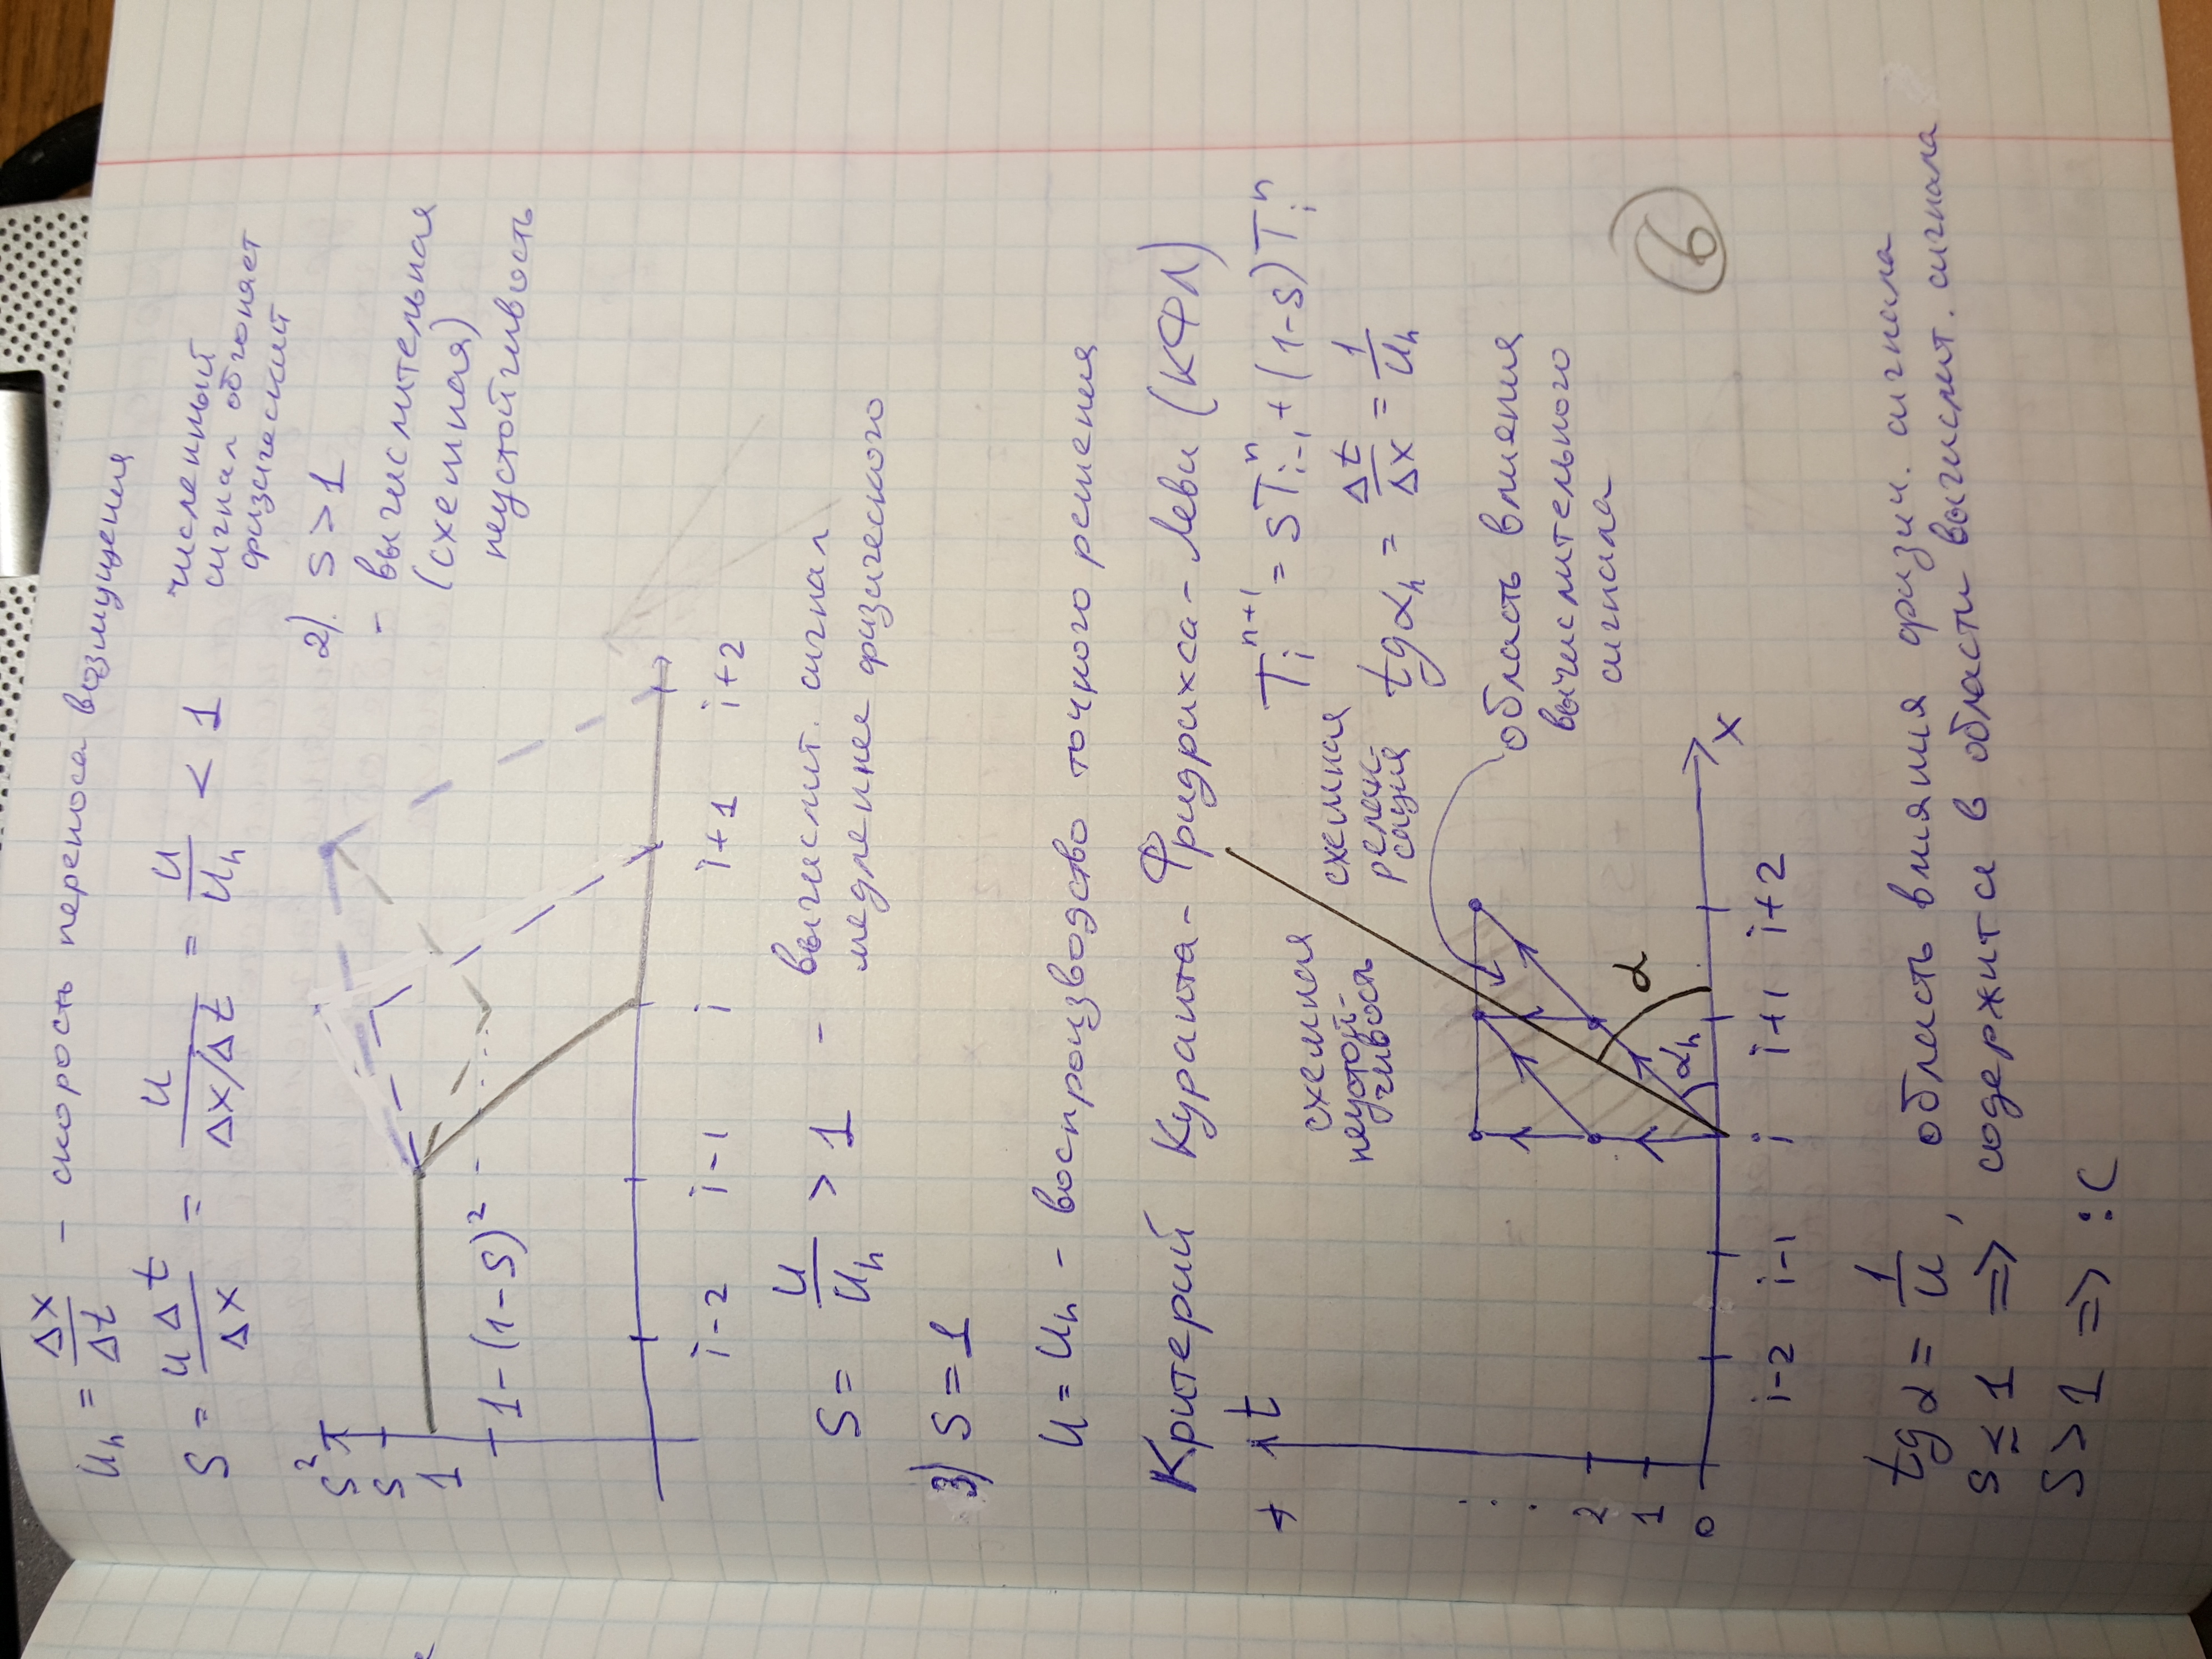 u_h = Δx/Δt – скорость переноса возмущения
S = uΔt/Δx = u/(Δx/Δt) = u/u_h < 1
численный
сигнал обгоняет
физический
2). S > 1
– вычислительная
(схемная)
неустойчивость
S²
S
1
1-(1-S)²
i-2 i-1 i i+1 i+2
S = u/u_h > 1 – вычислит. сигнал
медленнее физического
3) S = 1
u = u_h – воспроизводство точного решения
Критерий Куранта-Фридрихса-Леви (КФЛ)
t
схемная
неустой-
чивость
схемная
релак-
сация
T_i^{n+1} = ST_{i-1}^n + (1-S)T_i^n
tgα_h = Δt/Δx = 1/u_h
область влияния
вычислительного
сигнала
2
1
0
α
α_h
x
i-2 i-1 i i+1 i+2
6
tgα = 1/u, область влияния физич. сигнала
S ≤ 1 => содержится в области вычислит. сигнала
S > 1 => :(